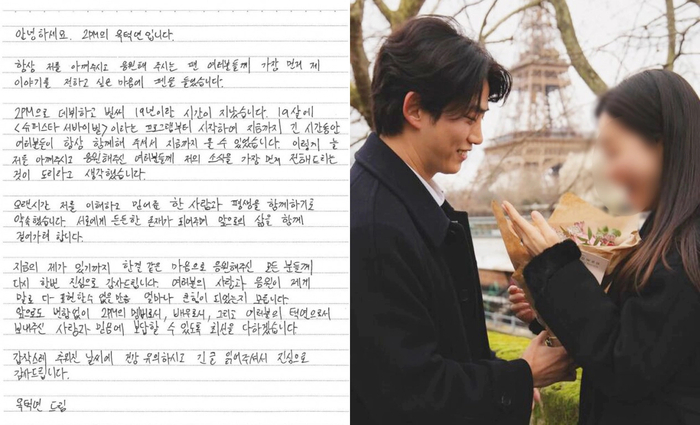 안녕하세요. 2PM의 옥택연 입니다.
항상 저를 아껴주시고 응원해 주시는 팬 여러분들께 가장 먼저 제
이야기를 전하고 싶은 마음에 펜을 들었습니다.
2PM으로 데뷔하고 벌써 19년이란 시간이 지났습니다. 19살에
<슈퍼스타 서바이벌>이라는 프로그램부터 시작하여 지금까지 긴 시간동안
여러분들이 항상 함께해 주셔서 지금까지 올 수 있었습니다. 이렇게 늘
저를 아껴주시고 응원해주신 여러분들께 저의 소식을 가장 먼저 전해드리는
것이 도리라고 생각했습니다.
오랜시간 저를 이해하고 믿어준 한 사람과 평생을 함께하기로
약속했습니다. 서로에게 든든한 존재가 되어주며 앞으로의 삶을 함께
걸어가려 합니다.
지금의 제가 있기까지 한결 같은 마음으로 응원해주신 모든 분들께
다시 한번 진심으로 감사드립니다. 여러분의 사랑과 응원이 제게
말로 다 표현할수 없을만큼 얼마나 큰힘이 되었는지 모릅니다.
앞으로도 변함없이 2PM의 멤버로서, 배우로서, 그리고 여러분의 택연으로서
보내주신 사랑과 믿음에 보답할 수 있도록 최선을 다하겠습니다
갑작스레 추워진 날씨에 건강 유의하시고 긴 글 읽어주셔서 진심으로
감사드립니다.
옥택연 드림